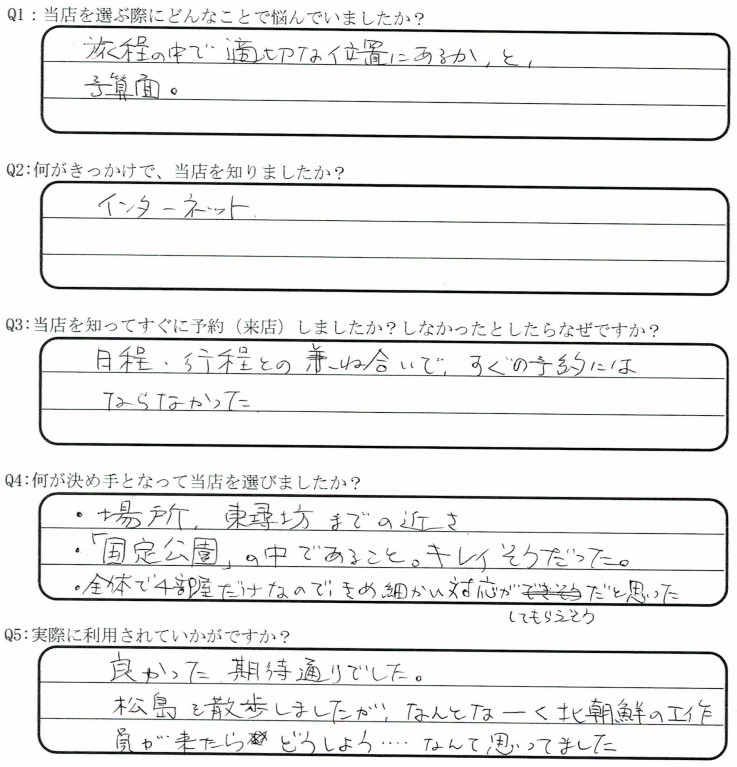 Q1：当店を選ぶ際にどんなことで悩んでいましたか？
旅程の中で適切な位置にあるか、と、
予算面。
Q2:何がきっかけで、当店を知りましたか？
インターネット
Q3:当店を知ってすぐに予約（来店）しましたか？しなかったとしたらなぜですか？
日程・行程との兼ね合いで、すぐの予約には
ならなかった
Q4:何が決め手となって当店を選びましたか？
・場所、東尋坊までの近さ
・「国定公園」の中であること。キレイそうだった。
・全体で4部屋だけなのできめ細かい対応ができそうだと思った
してもらえそう
Q5:実際に利用されていかがですか？
良かった 期待通りでした。
松島を散歩しましたが、なんとなーく北朝鮮の工作
員が来たらどうしよう‥‥なんて思ってました